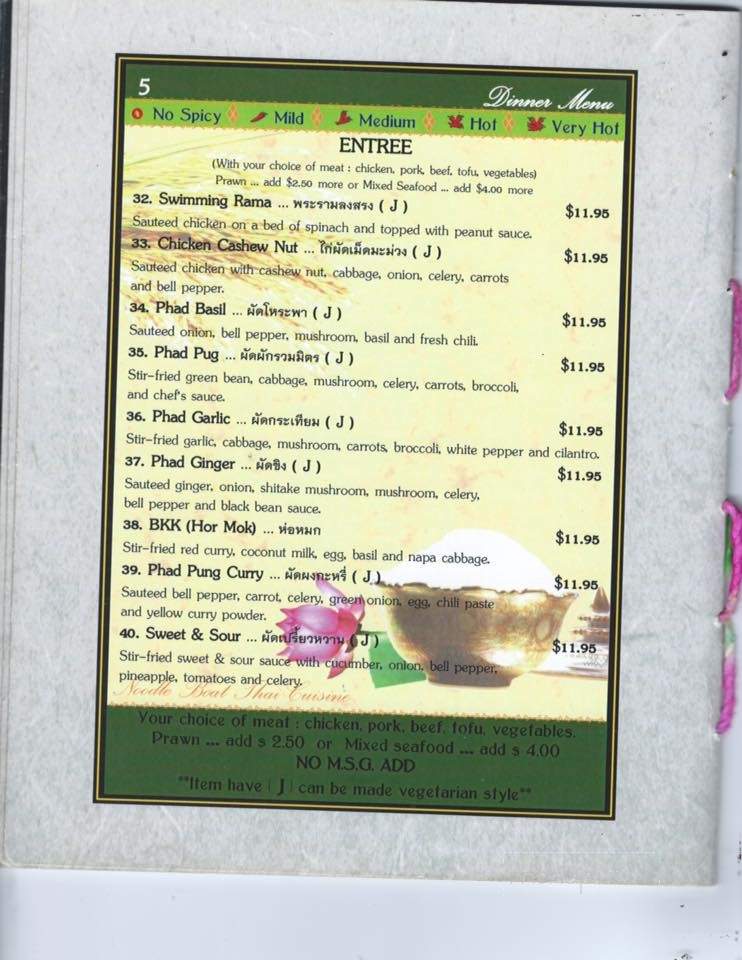 5
Dinner Menu
No Spicy Mild Medium Hot Very Hot
ENTREE
(With your choice of meat : chicken, pork, beef, tofu, vegetables)
Prawn ... add $2.50 more or Mixed Seafood ... add $4.00 more
32. Swimming Rama ... พระรามลงสรง ( J ) $11.95
Sauteed chicken on a bed of spinach and topped with peanut sauce.
33. Chicken Cashew Nut ... ไก่ผัดเม็ดมะม่วง ( J ) $11.95
Sauteed chicken with cashew nut, cabbage, onion, celery, carrots
and bell pepper.
34. Phad Basil ... ผัดโหระพา ( J ) $11.95
Sauteed onion, bell pepper, mushroom, basil and fresh chili.
35. Phad Pug ... ผัดผักรวมมิตร ( J ) $11.95
Stir-fried green bean, cabbage, mushroom, celery, carrots, broccoli,
and chef's sauce.
36. Phad Garlic ... ผัดกระเทียม ( J ) $11.95
Stir-fried garlic, cabbage, mushroom, carrots, broccoli, white pepper and cilantro.
37. Phad Ginger ... ผัดขิง ( J ) $11.95
Sauteed ginger, onion, shitake mushroom, mushroom, celery,
bell pepper and black bean sauce.
38. BKK (Hor Mok) ... ห่อหมก $11.95
Stir-fried red curry, coconut milk, egg, basil and napa cabbage.
39. Phad Pung Curry ... ผัดผงกะหรี่ ( J ) $11.95
Sauteed bell pepper, carrot, celery, green onion, egg, chili paste
and yellow curry powder.
40. Sweet & Sour ... ผัดเปรี้ยวหวาน ( J ) $11.95
Stir-fried sweet & sour sauce with cucumber, onion, bell pepper,
pineapple, tomatoes and celery.
Noodle Boat Thai Cuisine
Your choice of meat : chicken, pork, beef, tofu, vegetables.
Prawn ... add $ 2.50 or Mixed seafood ... add $ 4.00
NO M.S.G. ADD
**Item have ( J ) can be made vegetarian style**